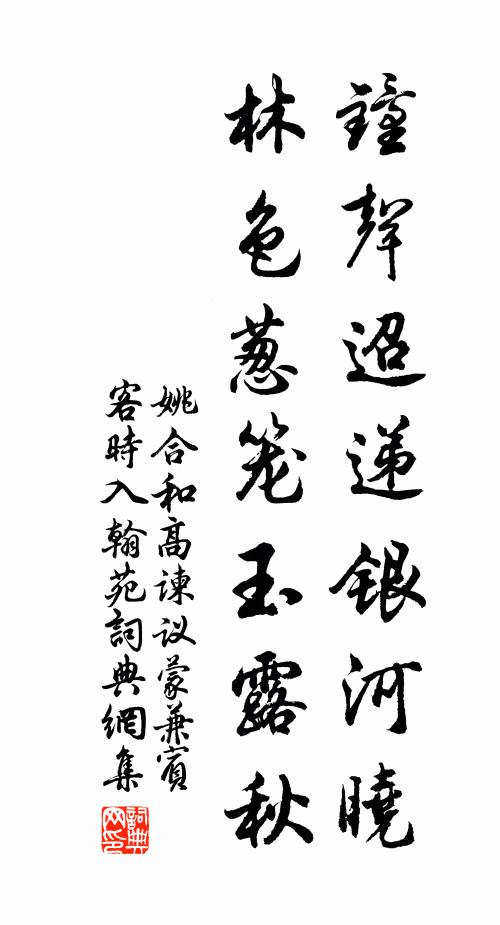 鐘聲迢递銀河曉
林色葱笼玉露秋
姚合和高谏议蒙兼賓
客時入翰苑詞典網集
詞典
网印